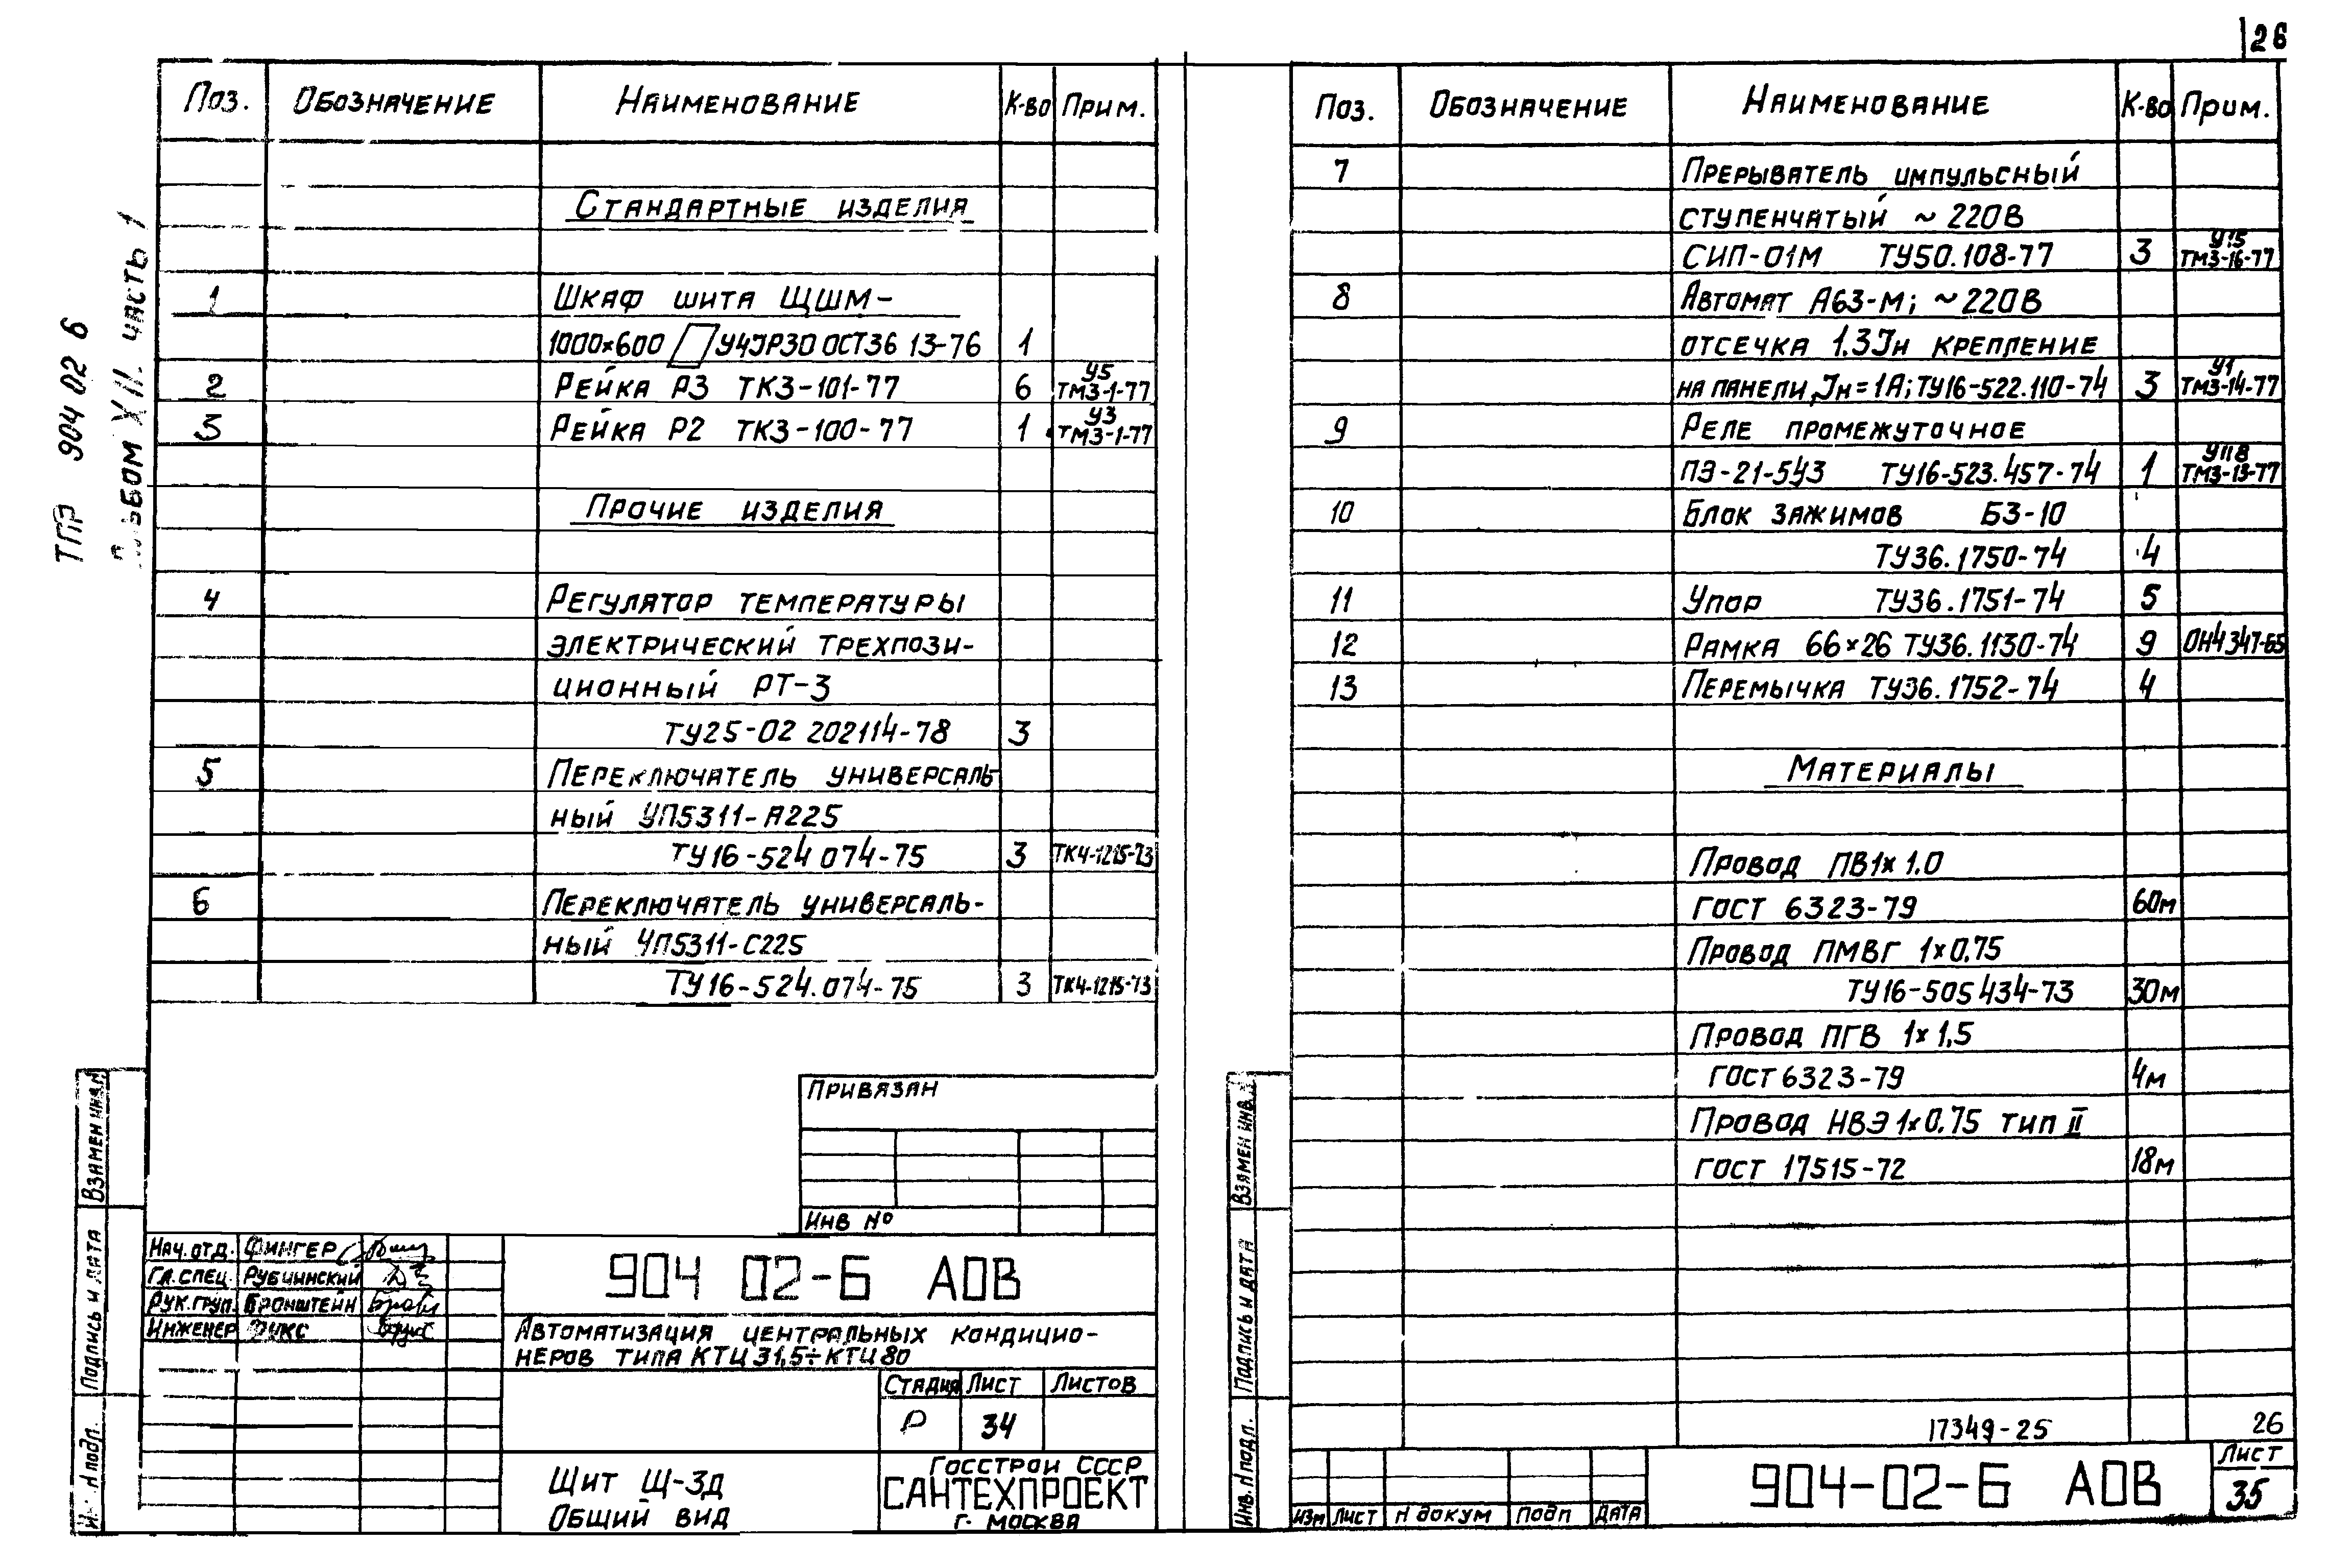 26
ТПР 904 02 6
Альбом XII. часть 1
Поз. Обозначение Наименование К-во Прим.
Стандартные изделия
1 Шкаф шита ЩШМ-
1000×600 У4JР30 ОСТ36 13-76 1
2 Рейка Р3 ТК3-101-77 6 У5 ТМ3-1-77
3 Рейка Р2 ТК3-100-77 1 У3 ТМ3-1-77
Прочие изделия
4 Регулятор температуры
электрический трехпози-
ционный РТ-3
ТУ25-02 202114-78 3
5 Переключатель универсаль-
ный УП5311-А225
ТУ16-524 074-75 3 ТК4-1215-73
6 Переключатель универсаль-
ный УП5311-С225
ТУ16-524.074-75 3 ТК4-1215-73
Привязан
Инв №
Взамен инв.
Подпись и дата
Инв. № подл.
Нач. отд. Фингер
Гл. спец. Рубчинский
Рук. груп. Бронштейн
Инженер Фукс
904 02-6 АОВ
Автоматизация центральных кондицио-
неров типа КТЦ 31,5÷КТЦ 80
Стадия Лист Листов
Р 34
Щит Щ-3д
Общий вид
Госстрой СССР
САНТЕХПРОЕКТ
г. Москва
Поз. Обозначение Наименование К-во Прим.
7 Прерыватель импульсный
ступенчатый ~ 220В
СИП-01М ТУ50.108-77 3 У15 ТМ3-16-77
8 Автомат А63-М; ~220В
отсечка 1.3Jн крепление
на панели, Jн=1А; ТУ16-522.110-74 3 У1 ТМ3-14-77
9 Реле промежуточное
ПЭ-21-543 ТУ16-523.457-74 1 У118 ТМ3-13-77
10 Блок зажимов БЗ-10
ТУ36.1750-74 4
11 Упор ТУ36.1751-74 5
12 Рамка 66×26 ТУ36.1130-74 9 ОН4347-65
13 Перемычка ТУ36.1752-74 4
Материалы
Провод ПВ1×1.0
ГОСТ 6323-79 60м
Провод ПМВГ 1×0.75
ТУ16-505 434-73 30м
Провод ПГВ 1×1,5
ГОСТ 6323-79 4м
Провод НВЭ 1×0.75 тип II
ГОСТ 17515-72 18м
17349-25 26
Взамен инв.
Подпись и дата
Инв. № подл.
Изм Лист № докум Подп Дата
904-02-6 АОВ
Лист
35